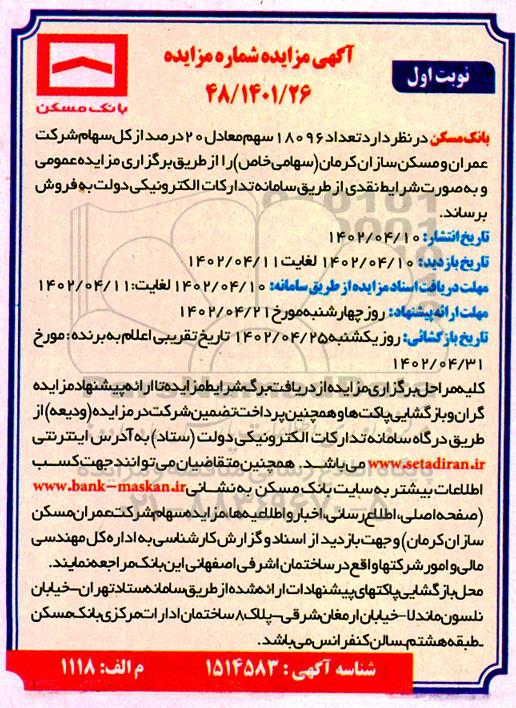 آگهی مزایده شماره مزایده
۴۸/۱۴۰۱/۲۶
نوبت اول
بانک مسکن
بانک مسکن در نظر دارد تعداد ۱۸۰۹۶ سهم معادل ۲۰ درصد از کل سهام شرکت
عمران و مسکن سازان کرمان (سهامی خاص) را از طریق برگزاری مزایده عمومی
و به صورت شرایط نقدی از طریق سامانه تدارکات الکترونیکی دولت به فروش
برساند.
تاریخ انتشار: ۱۴۰۲/۰۴/۱۰
تاریخ بازدید: ۱۴۰۲/۰۴/۱۰ لغایت ۱۴۰۲/۰۴/۱۱
مهلت دریافت اسناد مزایده از طریق سامانه: ۱۴۰۲/۰۴/۱۰ لغایت: ۱۴۰۲/۰۴/۱۱
مهلت ارائه پیشنهاد: روز چهارشنبه مورخ ۱۴۰۲/۰۴/۲۱
تاریخ بازگشائی: روز یکشنبه ۱۴۰۲/۰۴/۲۵ تاریخ تقریبی اعلام به برنده: مورخ
۱۴۰۲/۰۴/۳۱
کلیه مراحل برگزاری مزایده از دریافت برگ شرایط مزایده تا ارائه پیشنهاد مزایده
گران و بازگشایی پاکت ها و همچنین پرداخت تضمین شرکت در مزایده (ودیعه) از
طریق درگاه سامانه تدارکات الکترونیکی دولت (ستاد) به آدرس اینترنتی
www.setadiran.ir می باشد. همچنین متقاضیان می توانند جهت کسب
اطلاعات بیشتر به سایت بانک مسکن به نشانی www.bank-maskan.ir
(صفحه اصلی، اطلاع رسانی، اخبار و اطلاعیه ها، مزایده سهام شرکت عمران مسکن
سازان کرمان) و جهت بازدید از اسناد و گزارش کارشناسی به اداره کل مهندسی
مالی و امور شرکتها واقع در ساختمان اشرفی اصفهانی این بانک مراجعه نمایند.
محل بازگشایی پاکتهای پیشنهادات ارائه شده از طریق سامانه ستاد تهران-خیابان
نلسون ماندلا-خیابان ارمغان شرقی-پلاک ۸ ساختمان ادارات مرکزی بانک مسکن
-طبقه هشتم-سالن کنفرانس می باشد.
شناسه آگهی: ۱۵۱۴۵۸۳
م الف: ۱۱۱۸